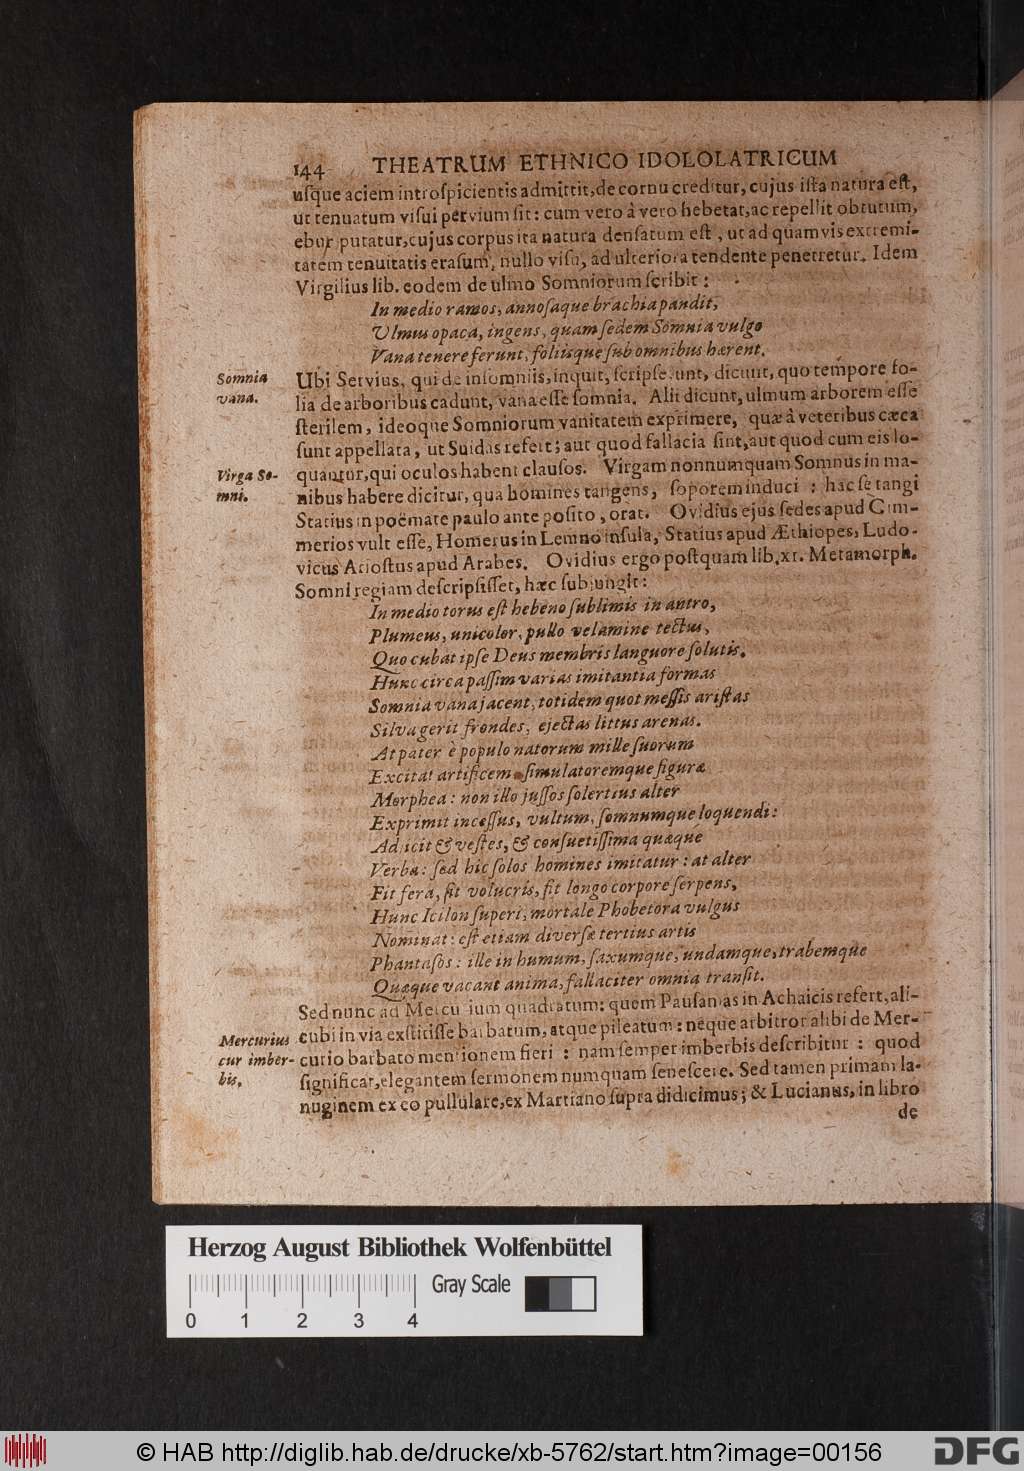 144 THEATRUM ETHNICO IDOLOLATRICUM
uſque aciem introſpicientis admittit, de cornu creditur, cujus iſta natura eſt,
ut tenuatum viſui pervium ſit: cum vero à vero hebetat, ac repellit obtutum,
ebur putatur, cujus corpus ita natura denſatum eſt, ut ad quamvis extremi-
tatem tenuitatis eraſum, nullo viſu, ad ulteriora tendente penetretur. Idem
Virgilius lib. eodem de ulmo Somniorum ſcribit:
In medio ramos, annoſaque brachia pandit,
Ulmus opaca, ingens, quam ſedem Somnia vulgo
Vana tenere ferunt, foliisque ſub omnibus hærent.
Somnia
vana.
Ubi Servius, qui de inſomniis, inquit, ſcripſerunt, dicunt, quo tempore fo-
lia de arboribus cadunt, vana eſſe ſomnia. Alii dicunt, ulmum arborem eſſe
ſterilem, ideoque Somniorum vanitatem exprimere, quæ à veteribus cæca
ſunt appellata, ut Suidas refert; aut quod fallacia ſint, aut quod cum eis lo-
Virga So-
mni.
quantur, qui oculos habent clauſos. Virgam nonnumquam Somnus in ma-
nibus habere dicitur, qua homines tangens, ſoporem induci: hac ſe tangi
Statius in poëmate paulo ante poſito, orat. Ovidius ejus ſedes apud Cim-
merios vult eſſe, Homerus in Lemno inſula, Statius apud Æthiopes, Ludo-
vicus Arioſtus apud Arabes. Ovidius ergo poſtquam lib. xı. Metamorph.
Somni regiam deſcripſiſſet, hæc ſubjungit:
In medio torus eſt hebeno ſublimis in antro,
Plumeus, unicolor, pullo velamine tectus,
Quo cubat ipſe Deus membris languore ſolutis.
Hunc circa paſſim varias imitantia formas
Somnia vana jacent, totidem quot meſſis ariſtas
Silva gerit frondes, ejectas littus arenas.
At pater è populo natorum mille ſuorum
Excitat artificem ſimulatoremque figuræ
Morphea: non illo juſſos ſolertius alter
Exprimit inceſſus, vultum, ſomnumque loquendi:
Adjicit & veſtes, & conſuetiſſima quæque
Verba: ſed hic ſolos homines imitatur: at alter
Fit fera, fit volucris, fit longo corpore ſerpens,
Hunc Icilon ſuperi, mortale Phobetora vulgus
Nominat: eſt etiam diverſæ tertius artis
Phantaſos: ille in humum, ſaxumque, undamque, trabemque
Quæque vacant anima, fallaciter omnia tranſit.
Sed nunc ad Mercurium quadratum: quem Pauſanias in Achaicis refert, ali-
Mercurius
cur imber-
bis.
cubi in via exſtitiſſe barbatum, atque pileatum: neque arbitror alibi de Mer-
curio barbato mentionem fieri: nam ſemper imberbis deſcribitur: quod
ſignificat, elegantem ſermonem numquam ſeneſcere. Sed tamen primam la-
nuginem ex eo pullulare, ex Martiano ſupra didicimus; & Lucianus, in libro
de
Herzog August Bibliothek Wolfenbüttel
Gray Scale
0 1 2 3 4
© HAB http://diglib.hab.de/drucke/xb-5762/start.htm?image=00156 DFG